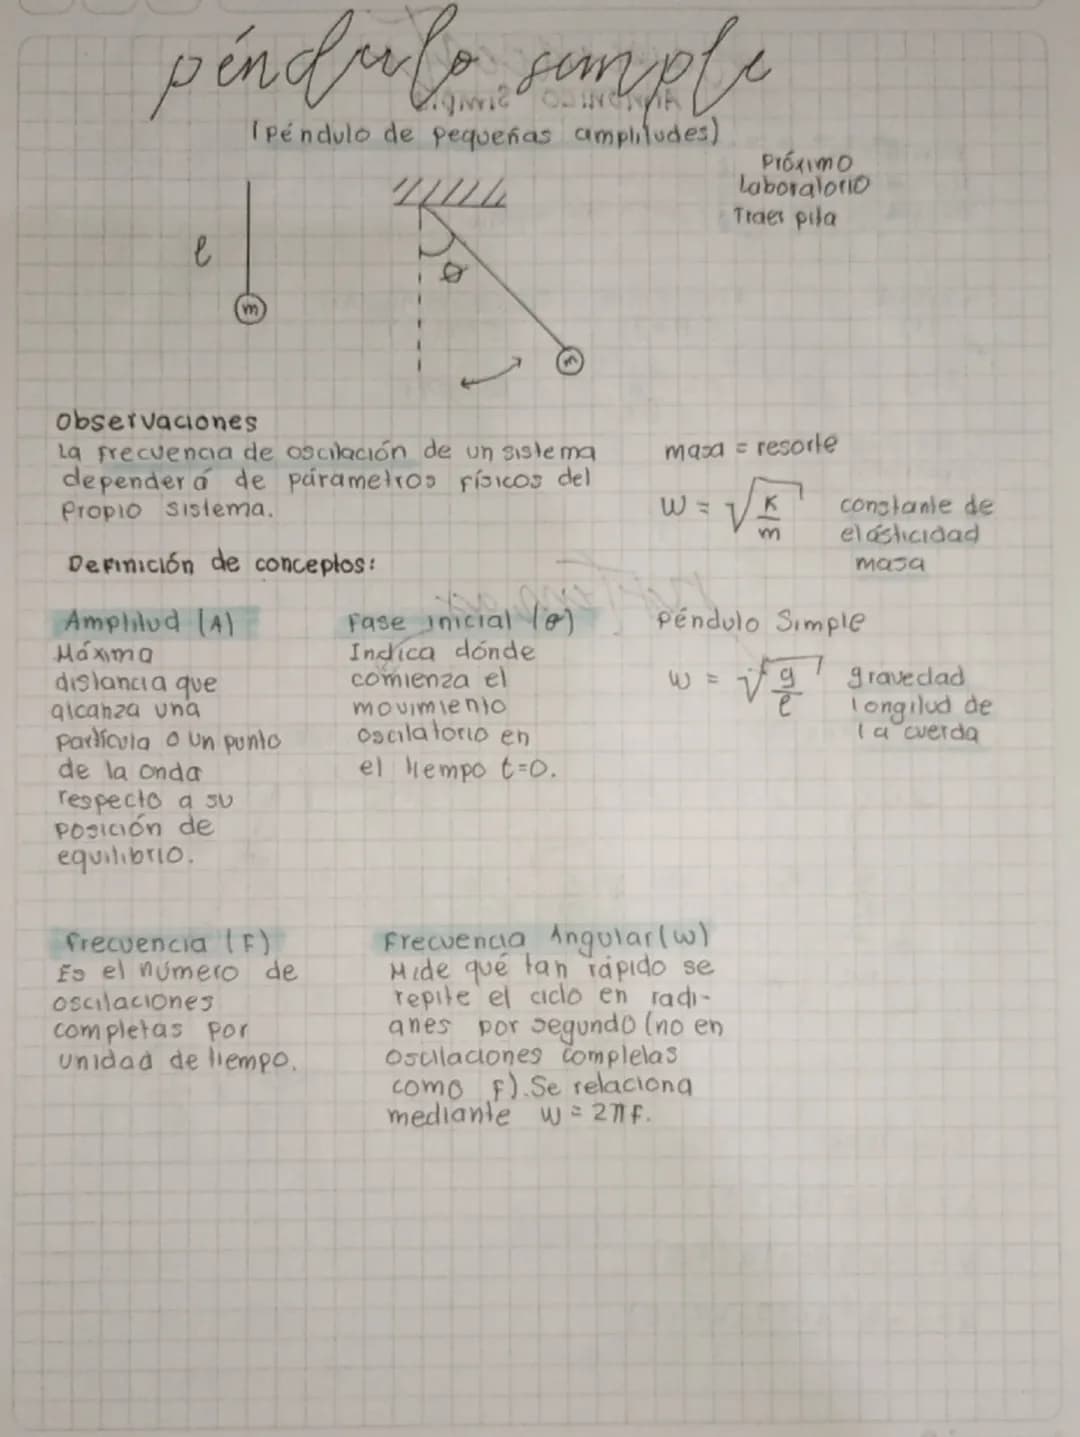 péndulo simple
(Péndulo de pequeñas amplitudes)
Próximo
Laboratorio
Traer pila
l
m
θ
m
Observaciones
La frecuencia de oscilación de un sistema
dependerá de párametros físicos del
propio sistema.
masa = resorte
W = √K/m
constante de
elásticidad
masa
Definición de conceptos:
Amplitud (A)
Máxima
distancia que
alcanza una
partícula o un punto
de la onda
respecto a su
posición de
equilibrio.
Fase inicial (θ)
Indica dónde
comienza el
movimiento
oscilatorio en
el tiempo t=0.
Péndulo Simple
W = √g/l
gravedad
longitud de
la cuerda
frecuencia (F)
Es el número de
oscilaciones
completas por
unidad de tiempo.
Frecuencia Angular(w)
Mide qué tan rápido se
repite el ciclo en radi-
anes por segundo (no en
oscilaciones completas
como F). Se relaciona
mediante w = 2πF.